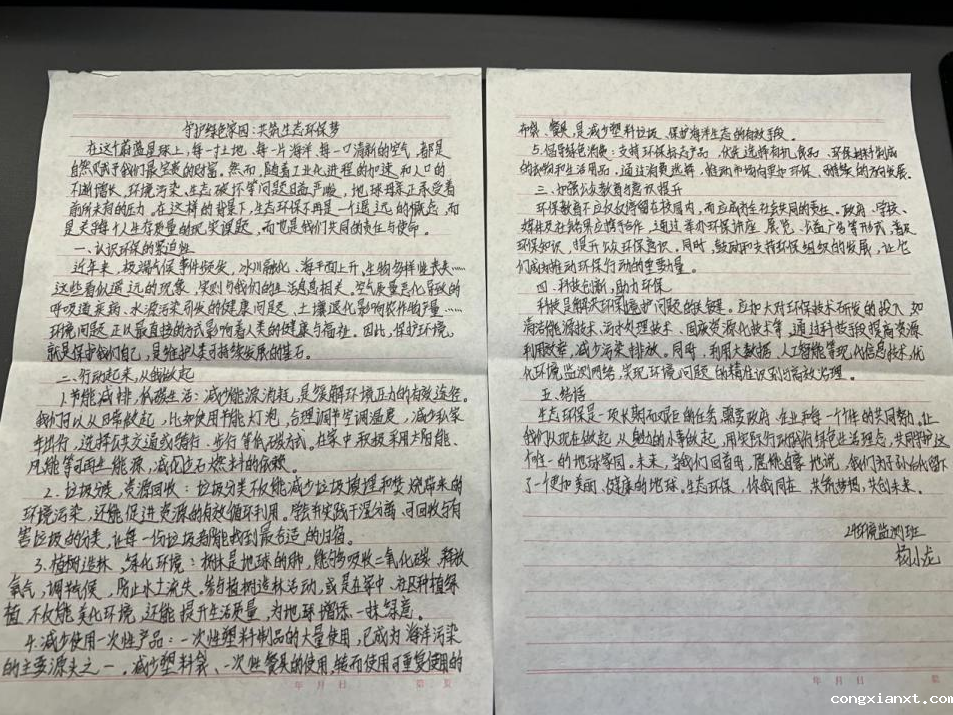 守护绿色家园：共筑生态环保梦
在这个蔚蓝星球上，每一寸土地、每一片海洋、每一口清新的空气，都是
自然赋予我们最宝贵的财富。然而，随着工业化进程的加速和人口的
不断增长，环境污染、生态破坏等问题日益严峻，地球母亲正承受着
前所未有的压力。在这样的背景下，生态环保不再是一个遥远的概念，而
是关乎每个人生存质量的现实课题，而也是我们共同的责任与使命。
一、认识环保的紧迫性
近年来，极端气候事件频发，冰川融化、海平面上升、生物多样性丧失……
这些看似遥远的现象，实则与我们的生活息息相关。空气质量恶化导致的
呼吸道疾病、水源污染引发的健康问题、土壤退化影响农作物产量……
环境问题正以最直接的方式影响着人类的健康与福祉。因此，保护环境，
就是保护我们自己，是维护人类可持续发展的基石。
二、行动起来，从我做起
1.节能减排，低碳生活：减少能源消耗，是缓解环境压力的有效途径。
我们可以从日常做起，比如使用节能灯泡，合理调节空调温度，减少私家
车出行，选择公共交通或骑行、步行等低碳方式。在家中，积极采用太阳能、
风能等可再生能源，减少化石燃料的依赖。
2.垃圾分类，资源回收：垃圾分类不仅能减少垃圾填埋和焚烧带来的
环境污染，还能促进资源的有效循环利用。学会并实践干湿分离、可回收与有
害垃圾的分类，让每一份垃圾都能找到最合适的归宿。
3.植树造林，绿化环境：树林是地球的肺，能够吸收二氧化碳、释放
氧气，调节气候，防止水土流失。参与植树造林活动，或是在家中、社区种植绿
植，不仅能美化环境，还能提升生活质量，为地球增添一抹绿意。
4.减少使用一次性产品：一次性塑料制品的大量使用，已成为海洋污染
的主要源头之一。减少塑料袋、一次性餐具的使用，转而使用可重复使用的
布袋、餐具，是减少塑料垃圾、保护海洋生态的有效手段。
5.倡导绿色消费：支持环保标志产品，优先选择有机食品、环保材料制成
的衣物和生活用品，通过消费选择，推动市场向更加环保、可持续的方向发展。
三、加强公众教育与意识提升
环保教育不应仅仅停留在校园内，而应成为全社会共同的责任。政府、学校、
媒体及社会组织应携手合作，通过举办环保讲座、展览、公益广告等形式，普及
环保知识，提升公众环保意识。同时，鼓励和支持环保组织的发展，让它
们成为推动环保行动的重要力量。
四、科技创新，助力环保
科技是解决环境保护问题的关键。应加大对环保技术研发的投入，如
清洁能源技术、污水处理技术、固废资源化技术等，通过科技手段提高资源
利用效率，减少污染排放。同时，利用大数据、人工智能等现代信息技术，优
化环境监测网络，实现环境问题的精准识别与高效治理。
五、结语
生态环保是一项长期而艰巨的任务，需要政府、企业和每一个个体的共同努力。让
我们从现在做起，从身边的小事做起，用实际行动践行绿色生活理念，共同守护这
个唯一的地球家园。未来，当我们回首时，愿能自豪地说，我们为子孙后代留下
了一个更加美丽、健康的地球。生态环保，你我同在，共筑梦想，共创未来。
环境监测班
杨小龙
年 月 日 第 页
年 月 日 第
congxianxt.com